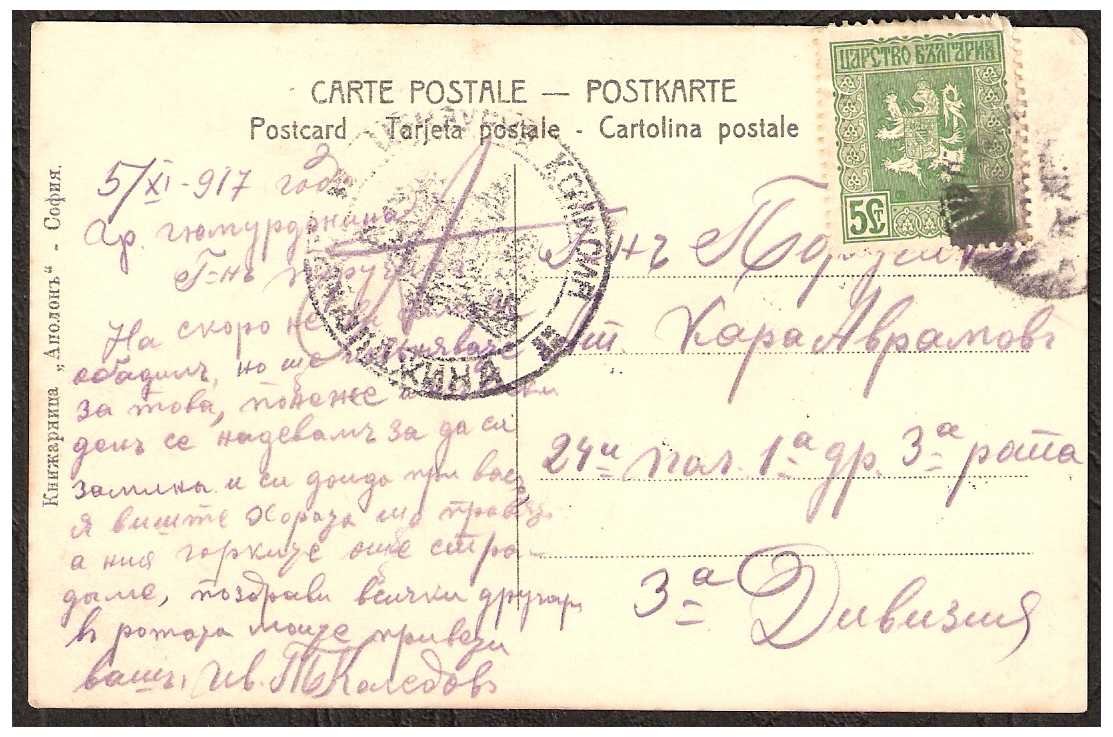 CARTE POSTALE — POSTKARTE
Postcard - Tarjeta postale - Cartolina postale
ЦАРСТВО БЪЛГАРИЯ
5 Ст
Книжарница „Аполонъ“ - София.
5/XI-917 год
Гр. Гюмурджина
Г-нъ
На скоро не се
обадилъ, но ще
за това, понеже
денъ се надевамъ за да си
замина и си дойда при васъ
я вишите хората що правятъ
а ния горките още стра-
даме, поздрави всички другари
въ ротата моите привети
вашъ, Ив. Т. Коледовъ
Г-нъ
От КараАврамовъ
24и пол. 1а др. 3а рота
3а Дивизия